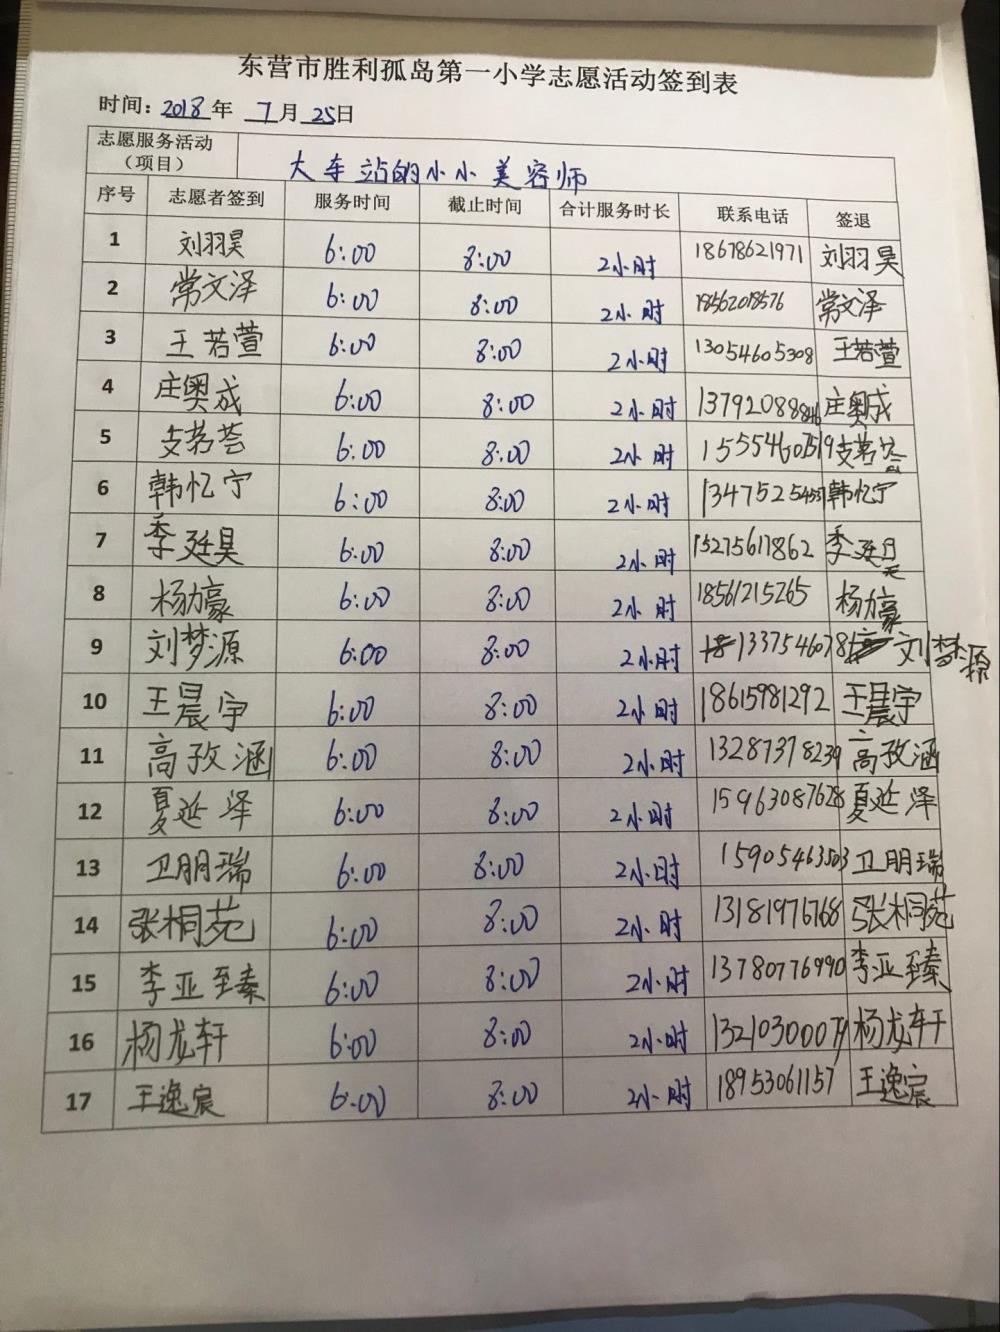 东营市胜利孤岛第一小学志愿活动签到表
时间：2018年 7月25日
志愿服务活动（项目） 大车站的小小美容师
序号 志愿者签到 服务时间 截止时间 合计服务时长 联系电话 签退
1 刘羽昊 6:00 8:00 2小时 18678621971 刘羽昊
2 常文泽 6:00 8:00 2小时 18562018576 常文泽
3 王若萱 6:00 8:00 2小时 13054605308 王若萱
4 庄奥成 6:00 8:00 2小时 庄奥成
5 支茗荟 6:00 8:00 2小时 15554607519 支茗荟
6 韩忆宁 6:00 8:00 2小时 韩忆宁
7 季廷昊 6:00 8:00 2小时 15275617862 季廷昊
8 杨力豪 6:00 8:00 2小时 18561215265 杨力豪
9 刘梦源 6:00 8:00 2小时 刘梦源
10 王晨宇 6:00 8:00 2小时 18615981292 王晨宇
11 高孜涵 6:00 8:00 2小时 13287378239 高孜涵
12 夏延泽 6:00 8:00 2小时 15963087628 夏延泽
13 卫朋瑞 6:00 8:00 2小时 15905463503 卫朋瑞
14 张桐苑 6:00 8:00 2小时 13181976768 张桐苑
15 李亚至臻 6:00 8:00 2小时 13780776990 李亚至臻
16 杨龙轩 6:00 8:00 2小时 杨龙轩
17 王逸宸 6:00 8:00 2小时 18953061157 王逸宸